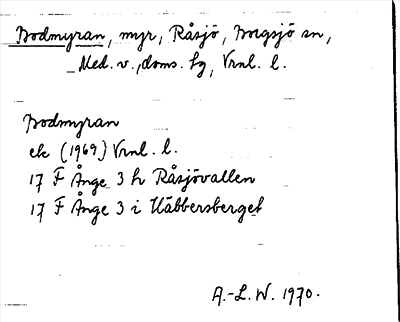 Bodmyran, myr, Råsjö, Borgsjö sn,
Med. v. doms. hg, Vrnl. l.
Bodmyran
ek (1969) Vrnl. l.
17 F Ånge 3 h Råsjövallen
17 F Ånge 3 i Häbbersberget
A.-L. W. 1970.